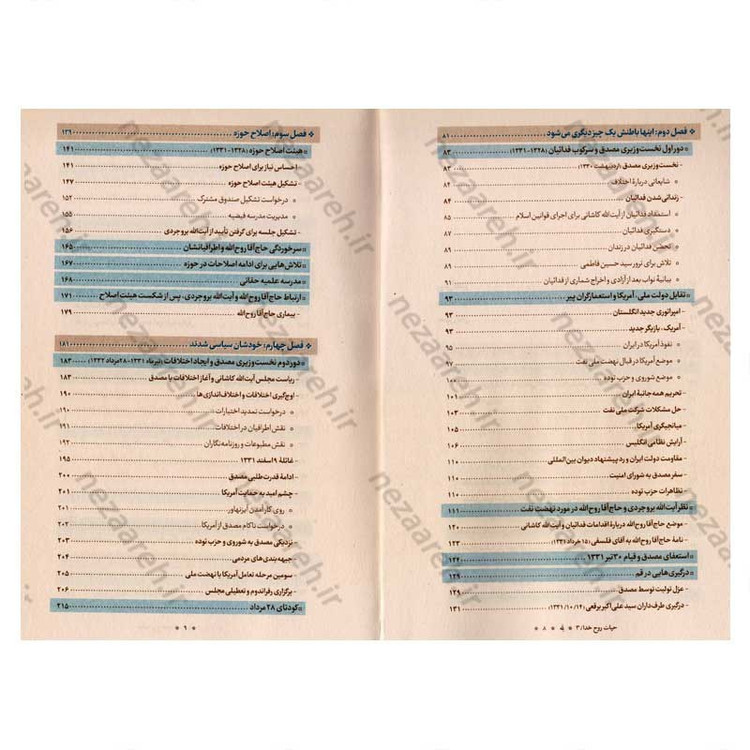 ❖ فصل دوم: اینها باطنش یک چیز دیگری می‌شود ۸۱
دور اول نخست‌وزیری مصدق و سرکوب فدائیان (۱۳۲۸-۱۳۳۱) ۸۳
- نخست‌وزیری مصدق (اردیبهشت ۱۳۳۰) ۸۳
شایعاتی دربارهٔ اختلاف ۸۴
- زندانی‌شدن فدائیان ۸۴
استمداد فدائیان از آیت‌الله کاشانی برای اجرای قوانین اسلام ۸۵
دستگیری فدائیان ۸۷
تحصّن فدائیان در زندان ۸۹
تلاش برای ترور سید حسین فاطمی ۸۹
بیانیهٔ نواب بعد از آزادی و اخراج شماری از فدائیان ۹۱
تقابل دولت ملی، آمریکا و استعمارگران پیر ۹۳
- امپراتوری جدید انگلستان ۹۳
- آمریکا، بازیگر جدید ۹۳
نفوذ آمریکا در ایران ۹۵
موضع آمریکا در قبال نهضت ملی نفت ۹۷
موضع شوروی و حزب توده ۱۰۰
- تحریم همه‌جانبهٔ ایران ۱۰۱
- حل مشکلات شرکت ملی نفت ۱۰۳
- میانجیگری آمریکا ۱۰۵
- آرایش نظامی انگلیس ۱۰۶
- مقاومت دولت ایران و رد پیشنهاد دیوان بین‌المللی ۱۱۰
- سفر مصدق به شورای امنیت ۱۱۰
- تظاهرات حزب توده ۱۱۰
نظر آیت‌الله بروجردی و حاج‌آقا روح‌الله در مورد نهضت نفت ۱۱۱
- موضع حاج‌آقا روح‌الله دربارهٔ اقدامات فدائیان و آیت‌الله کاشانی ۱۲۰
- نامهٔ حاج‌آقا روح‌الله به آقای فلسفی (۱۵ خرداد ۱۳۳۱) ۱۲۳
استعفای مصدق و قیام ۳۰ تیر ۱۳۳۱ ۱۲۴
درگیری‌هایی در قم ۱۲۹
- عزل تولیت توسط مصدق ۱۲۹
- درگیری طرف‌داران سید علی‌اکبر برقعی (۱۳۳۱/۱۰/۱۴) ۱۳۱
حیات روح خدا؛ ۳ ۸
❖ فصل سوم: اصلاح حوزه ۱۳۹
هیئت اصلاح حوزه (۱۳۲۸-۱۳۳۱) ۱۴۱
- احساس نیاز برای اصلاح حوزه ۱۴۱
- تشکیل هیئت اصلاح حوزه ۱۴۷
درخواست تشکیل صندوق مشترک ۱۵۲
مدیریت مدرسه فیضیه ۱۵۵
- تشکیل جلسه برای گرفتن تأیید از آیت‌الله بروجردی ۱۵۶
سرخوردگی حاج‌آقا روح‌الله و اطرافیانشان ۱۶۵
تلاش‌هایی برای ادامه اصلاحات در حوزه ۱۶۷
مدرسه علمیه حقانی ۱۶۸
ارتباط حاج‌آقا روح‌الله و آیت‌الله بروجردی، پس از شکست هیئت اصلاح ۱۷۱
- بیماری حاج‌آقا روح‌الله ۱۷۹
❖ فصل چهارم: خودشان سیاسی شدند ۱۸۱
دور دوم نخست‌وزیری مصدق و ایجاد اختلافات (تیرماه ۱۳۳۱-۲۸ مرداد ۱۳۳۲) ۱۸۳
- ریاست مجلس آیت‌الله کاشانی و آغاز اختلافات با مصدق ۱۸۳
- اوج‌گیری اختلافات و اختلاف‌اندازی‌ها ۱۹۰
درخواست تمدید اختیارات ۱۹۰
نقش اطرافیان در اختلافات ۱۹۱
نقش مطبوعات و روزنامه‌نگاران ۱۹۲
- غائلهٔ ۹ اسفند ۱۳۳۱ ۱۹۵
- ادامهٔ قدرت‌طلبی مصدق ۲۰۰
- چشم امید به حمایت آمریکا ۲۰۱
روی کار آمدن آیزنهاور ۲۰۱
درخواست ناکام مصدق از آمریکا ۲۰۲
- نزدیکی مصدق به شوروی و حزب توده ۲۰۳
- جبهه‌بندی‌های مردمی ۲۰۴
- سومین مرحله تعامل آمریکا با نهضت ملی ۲۰۵
- برگزاری رفراندوم و تعطیلی مجلس ۲۰۶
کودتای ۲۸ مرداد ۲۱۵
۹
nezaareh.ir